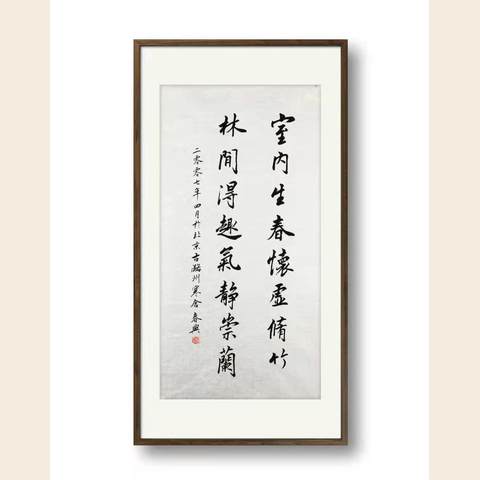 室内生春懷虛脩竹
林間得趣氣靜崇蘭
二零零七年四月於北京古瀛州寒舍春興